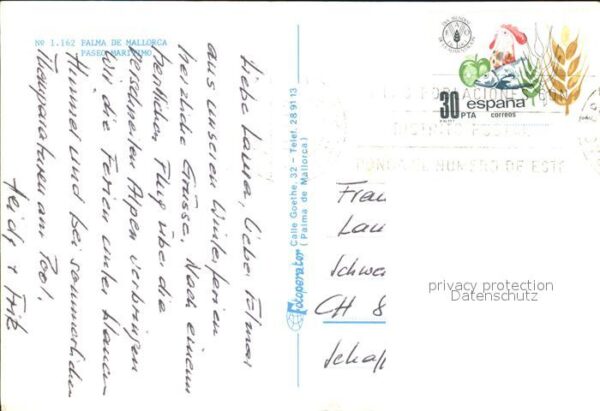 Nº 1.162 PALMA DE MALLORCA
PASEO MARITIMO
Liebe Laura, lieber Elmar
aus unseren Winterferien
herzliche Grüsse. Nach einem
herrlichen Flug über die
verschneiten Alpen verbringen
wir die Ferien unter blauem
Himmel und bei sommerlichen
Temparaturen am Pool.
Heidy + Fritz
Fotoperator Calle Goethe, 32 - Telef. 28 91 13
( Palma de Mallorca )
DIA MUNDIAL
30
PTA
españa
correos
POBLACIONE
DISTRITO POSTAL
PONGA EL NUMERO DE ESTE
Frau
Lau
Schwe
CH 8
Schaf
privacy protection
Datenschutz